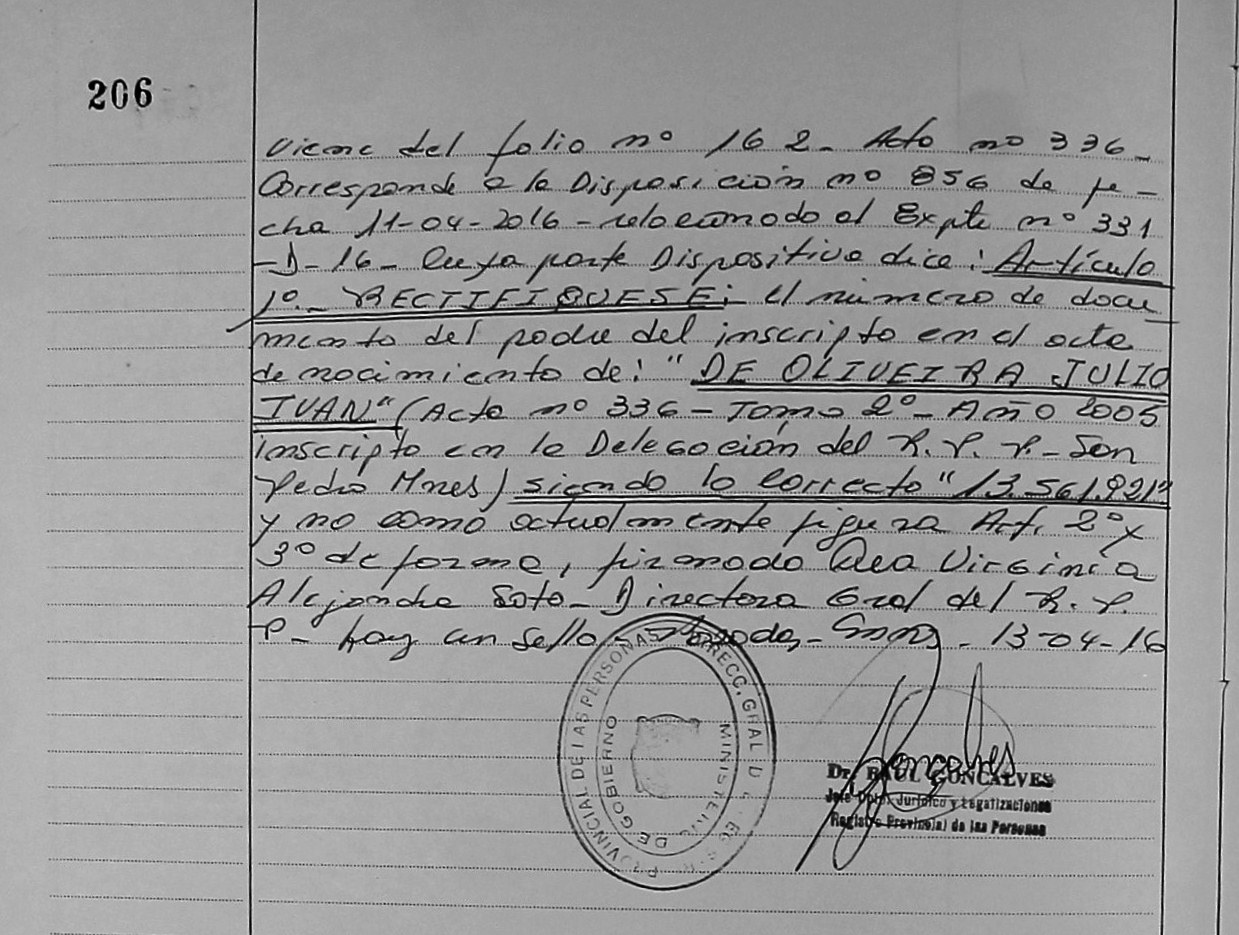 206
Viene del folio nº 162- Acta nº 336-
Corresponde a la Disposición nº 856 de fe-
cha 11-04-2016 - relacionado al Expte nº 331
-D-16- Cuya parte Dispositiva dice: Artículo
1º.- RECTIFIQUESE: el número de docu
mento del padre del inscripto en el acta
de nacimiento de: "DE OLIVEIRA JULIO
IVAN" (Acta nº 336 - Tomo 2º - Año 2005
inscripto en la Delegación del R.P.P. - San
Pedro Mnes) siendo lo correcto "13.561.921"
y no como actualmente figura Art. 2º y
3º de forma, firmado Dra Virginia
Alejandra Soto - Directora Gral del R.P.
P- hay un sello - Posadas - 13-04-16
PROVINCIAL DE LAS PERSONAS DIRECC. GRAL D
MINISTERIO DE GOBIERNO
Dr. RAUL GONCALVES
Jefe Dpto. Jurídico y Legalizaciones
Registro Provincial de las Personas